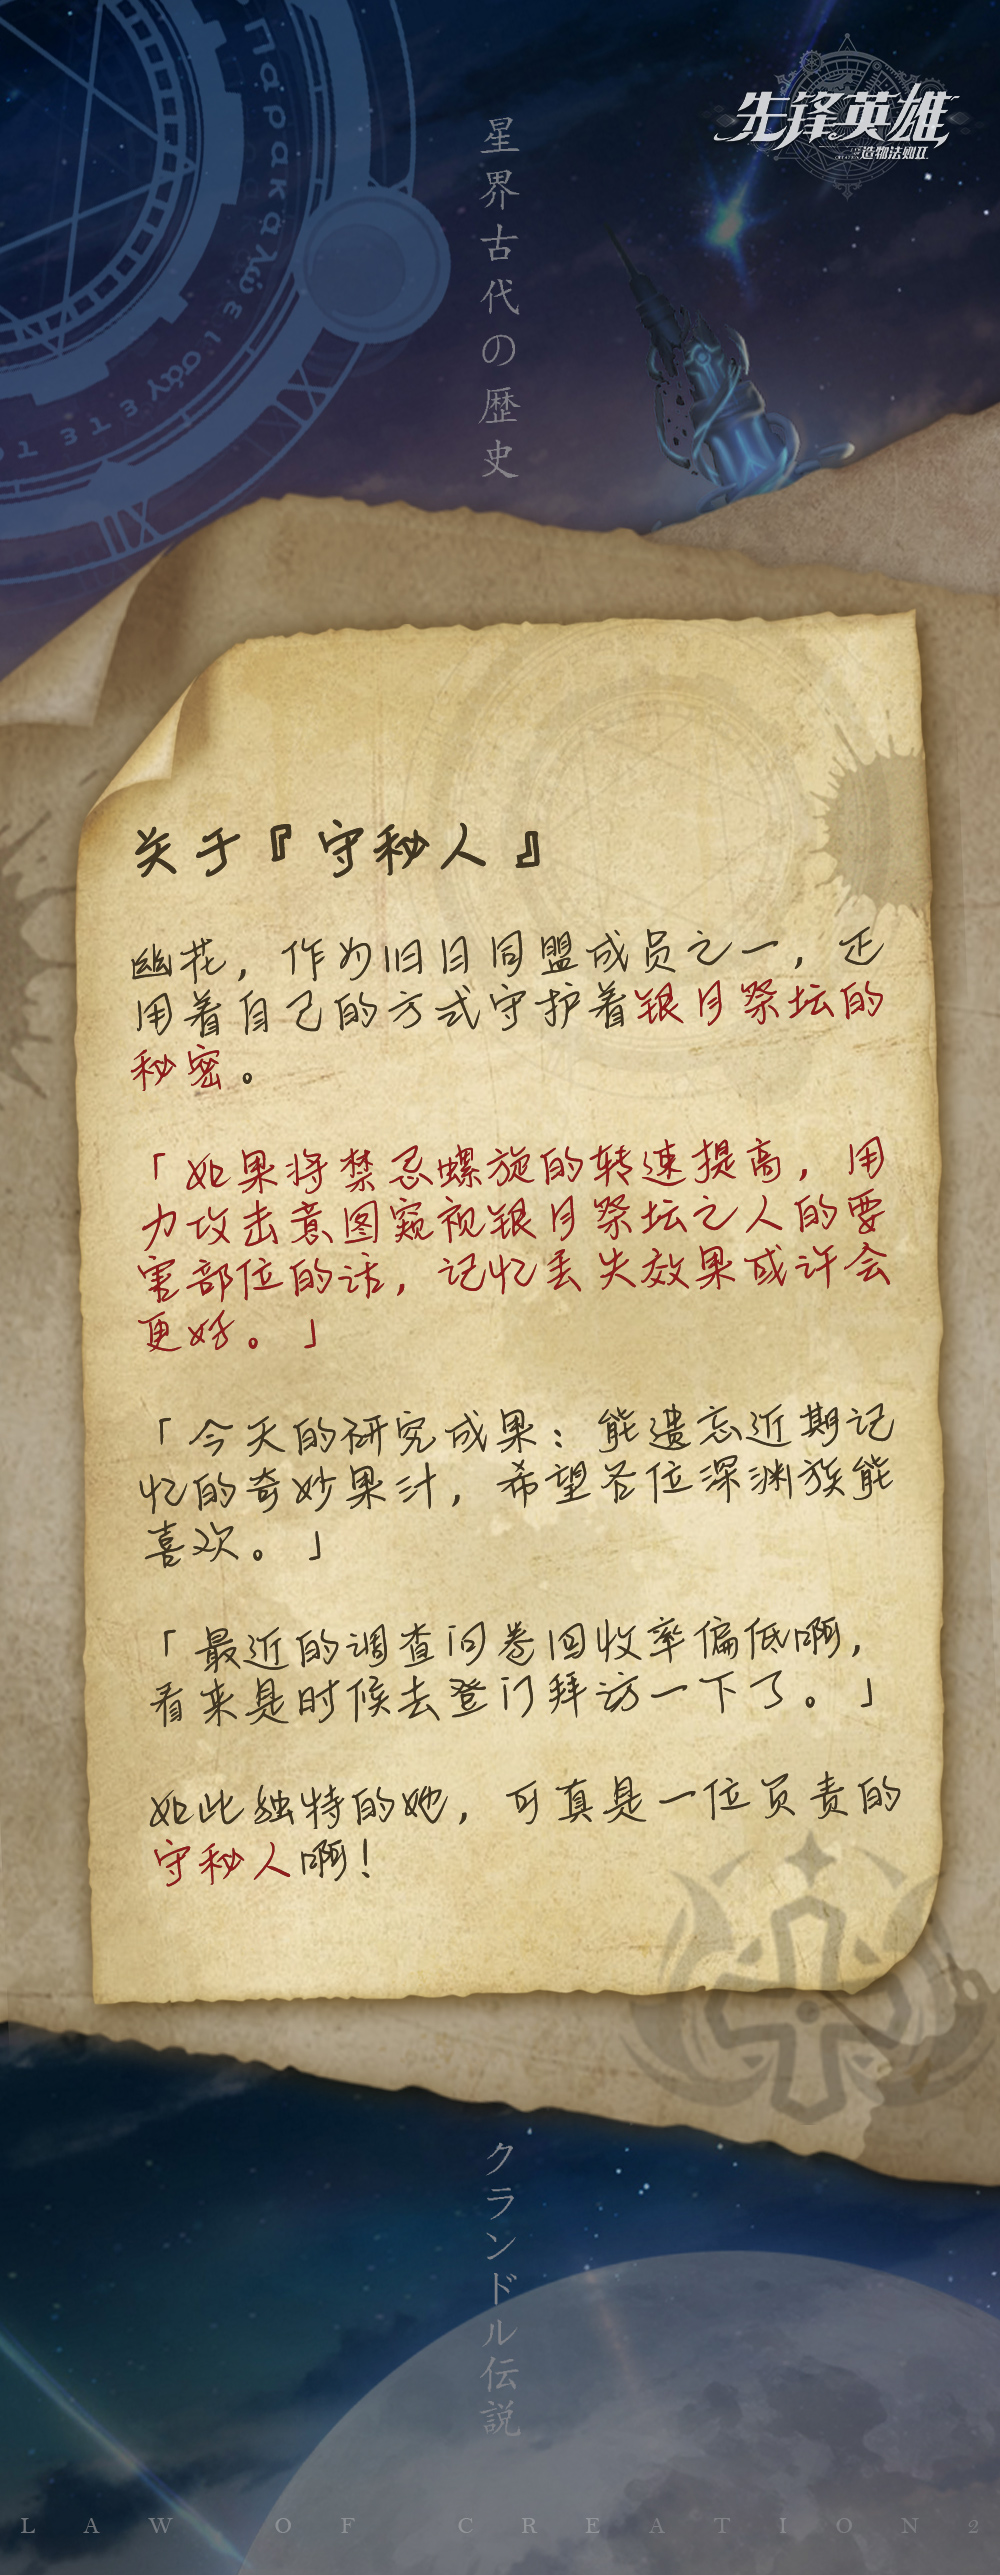 先锋英雄
造物法则II
παρακαλώ
星界古代の歴史
关于『守秘人』
幽花，作为旧日同盟成员之一，正
用着自己的方式守护着银月祭坛的
秘密。
「如果将禁忌螺旋的转速提高，用
力攻击意图窥视银月祭坛之人的要
害部位的话，记忆丢失效果或许会
更好。」
「今天的研究成果：能遗忘近期记
忆的奇妙果汁，希望各位深渊族能
喜欢。」
「最近的调查问卷回收率偏低啊，
看来是时候去登门拜访一下了。」
如此独特的她，可真是一位负责的
守秘人啊！
クランドル伝説
LAW OF CREATION2